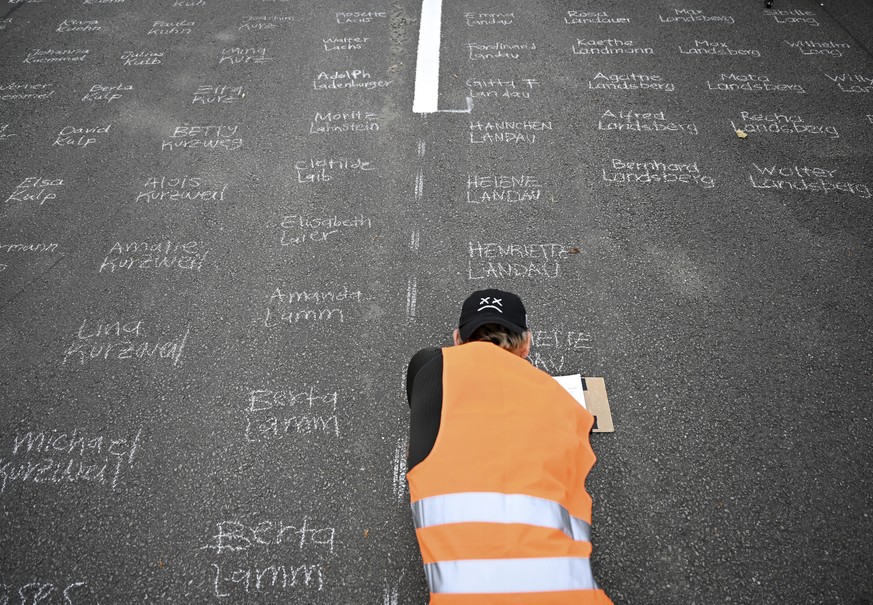 Klara
Kuhn
Paula
Kuhn
Joachim
Kurz
Rosette
Lachs
Emma
Landau
Rosa
Landauer
Max
Landsberg
Emilie
Lang
Johanna
Kuemmel
Julius
Kulb
Kurz
Walter
Lachs
Ferdinand
Landau
Kaethe
Landmann
Max
Landsberg
Wilhelm
Lang
Werner
Kuemmel
Berta
Kulb
Kurz
Adolph
Ladenburger
Gitta T
Landau
Agathe
Landsberg
Meta
Landsberg
Willy
David
Kulp
BETTY
Kurzweg
Moritz
Lahnstein
HANNCHEN
LANDAU
Alfred
Landsberg
Recha
Landsberg
Elsa
Kulp
Alois
Kurzweil
Clotilde
Laib
HELENE
LANDAU
Bernhard
Landsberg
Walter
Landsberg
Amalie
Kurzweil
Elisabeth
Laier
HENRIETTE
LANDAU
Lina
Kurzweil
Amanda
Lamm
Michael
Kurzweil
Berta
Lamm
Berta
Lamm